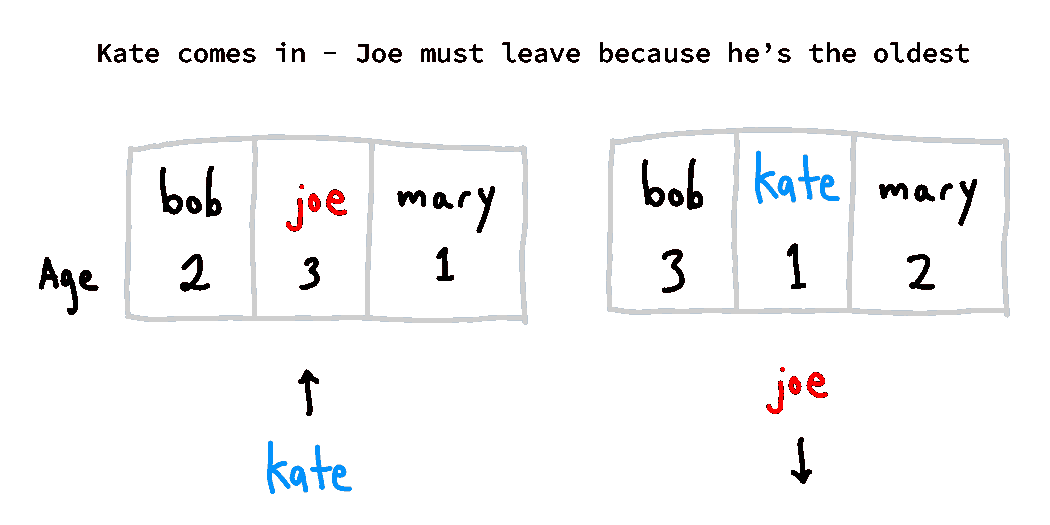 Kate comes in - Joe must leave because he’s the oldest
bob joe mary
Age 2 3 1
kate
bob kate mary
3 1 2
joe